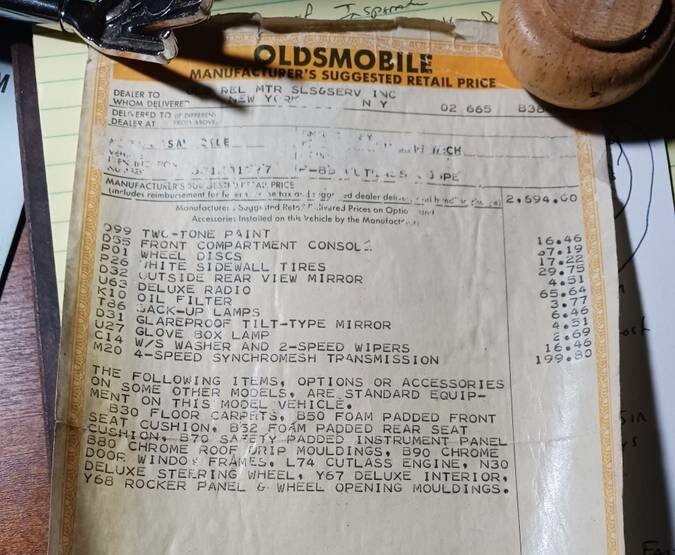 OLDSMOBILE
MANUFACTURER'S SUGGESTED RETAIL PRICE
DEALER TO WHOM DELIVERED
MTR SLSGSERV INC
NEW YORK N Y 02 665 838
DELIVERED TO (IF DIFFERENT FROM ABOVE)
DEALER AT
MANUFACTURER'S SUGGESTED RETAIL PRICE
(includes reimbursement for tax and dealer 2,594.00
Manufacturer's Suggested Delivered Prices on
Accessories Installed on this Vehicle by the Manufacturer
D99 TWO-TONE PAINT 16.46
D55 FRONT COMPARTMENT CONSOLE 67.19
P01 WHEEL DISCS 17.22
P26 WHITE SIDEWALL TIRES 29.75
D32 OUTSIDE REAR VIEW MIRROR 4.51
U63 DELUXE RADIO 65.64
K10 OIL FILTER 3.77
T86 BACK-UP LAMPS 6.46
D31 GLAREPROOF TILT-TYPE MIRROR 4.51
U27 GLOVE BOX LAMP 2.69
C14 W/S WASHER AND 2-SPEED WIPERS 16.46
M20 4-SPEED SYNCHROMESH TRANSMISSION 199.80
THE FOLLOWING ITEMS, OPTIONS OR ACCESSORIES
ON SOME OTHER MODELS, ARE STANDARD EQUIP-
MENT ON THIS MODEL VEHICLE.
B30 FLOOR CARPETS, B50 FOAM PADDED FRONT
SEAT CUSHION, B32 FOAM PADDED REAR SEAT
CUSHION, B70 SAFETY PADDED INSTRUMENT PANEL
B80 CHROME ROOF DRIP MOULDINGS, B90 CHROME
DOOR WINDOW FRAMES, L74 CUTLASS ENGINE, N30
DELUXE STEERING WHEEL, Y67 DELUXE INTERIOR,
Y68 ROCKER PANEL & WHEEL OPENING MOULDINGS.